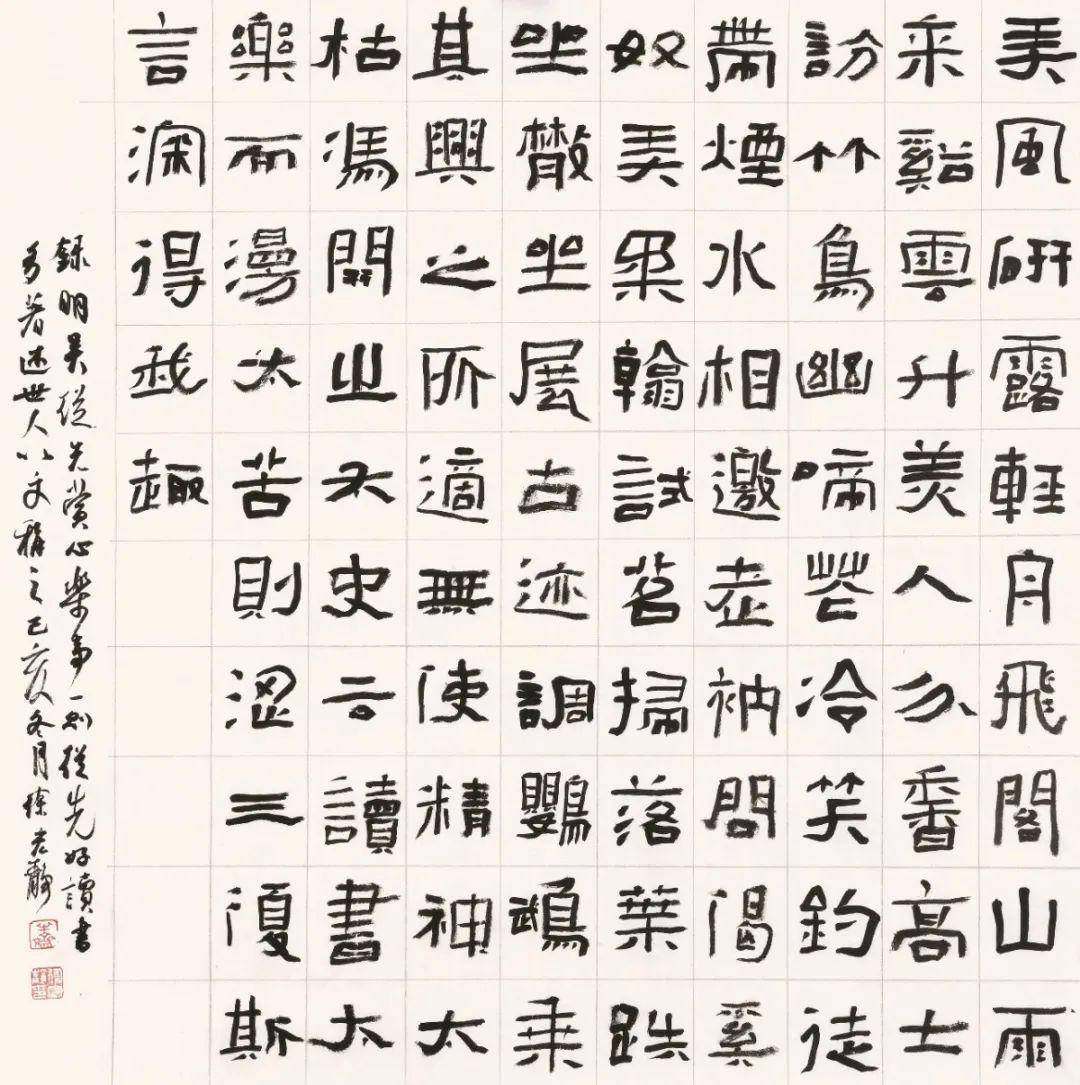 弄風研露輕舟飛閣山雨
來谿雲升美人分香高士
訪竹鳥幽啼花冷笑釣徒
帶煙水相邀老衲問偈奚
奴弄柔翰試茗掃落葉趺
坐散坐展古迹調鸚鵡乘
其興之所適無使精神太
枯馮開之太史云讀書太
樂而漫太苦則澀三復斯
言深得我趣
錄明吳從先賞心樂事一則從先好讀書
多著述世人以文稱之己亥冬月